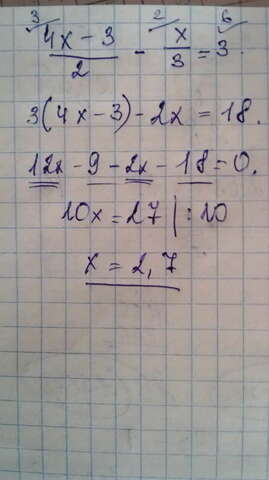 3 2 6
(4x - 3)/2 - x/3 = 3.
3(4x - 3) - 2x = 18.
12x - 9 - 2x - 18 = 0.
10x = 27 | : 10
x = 2,7